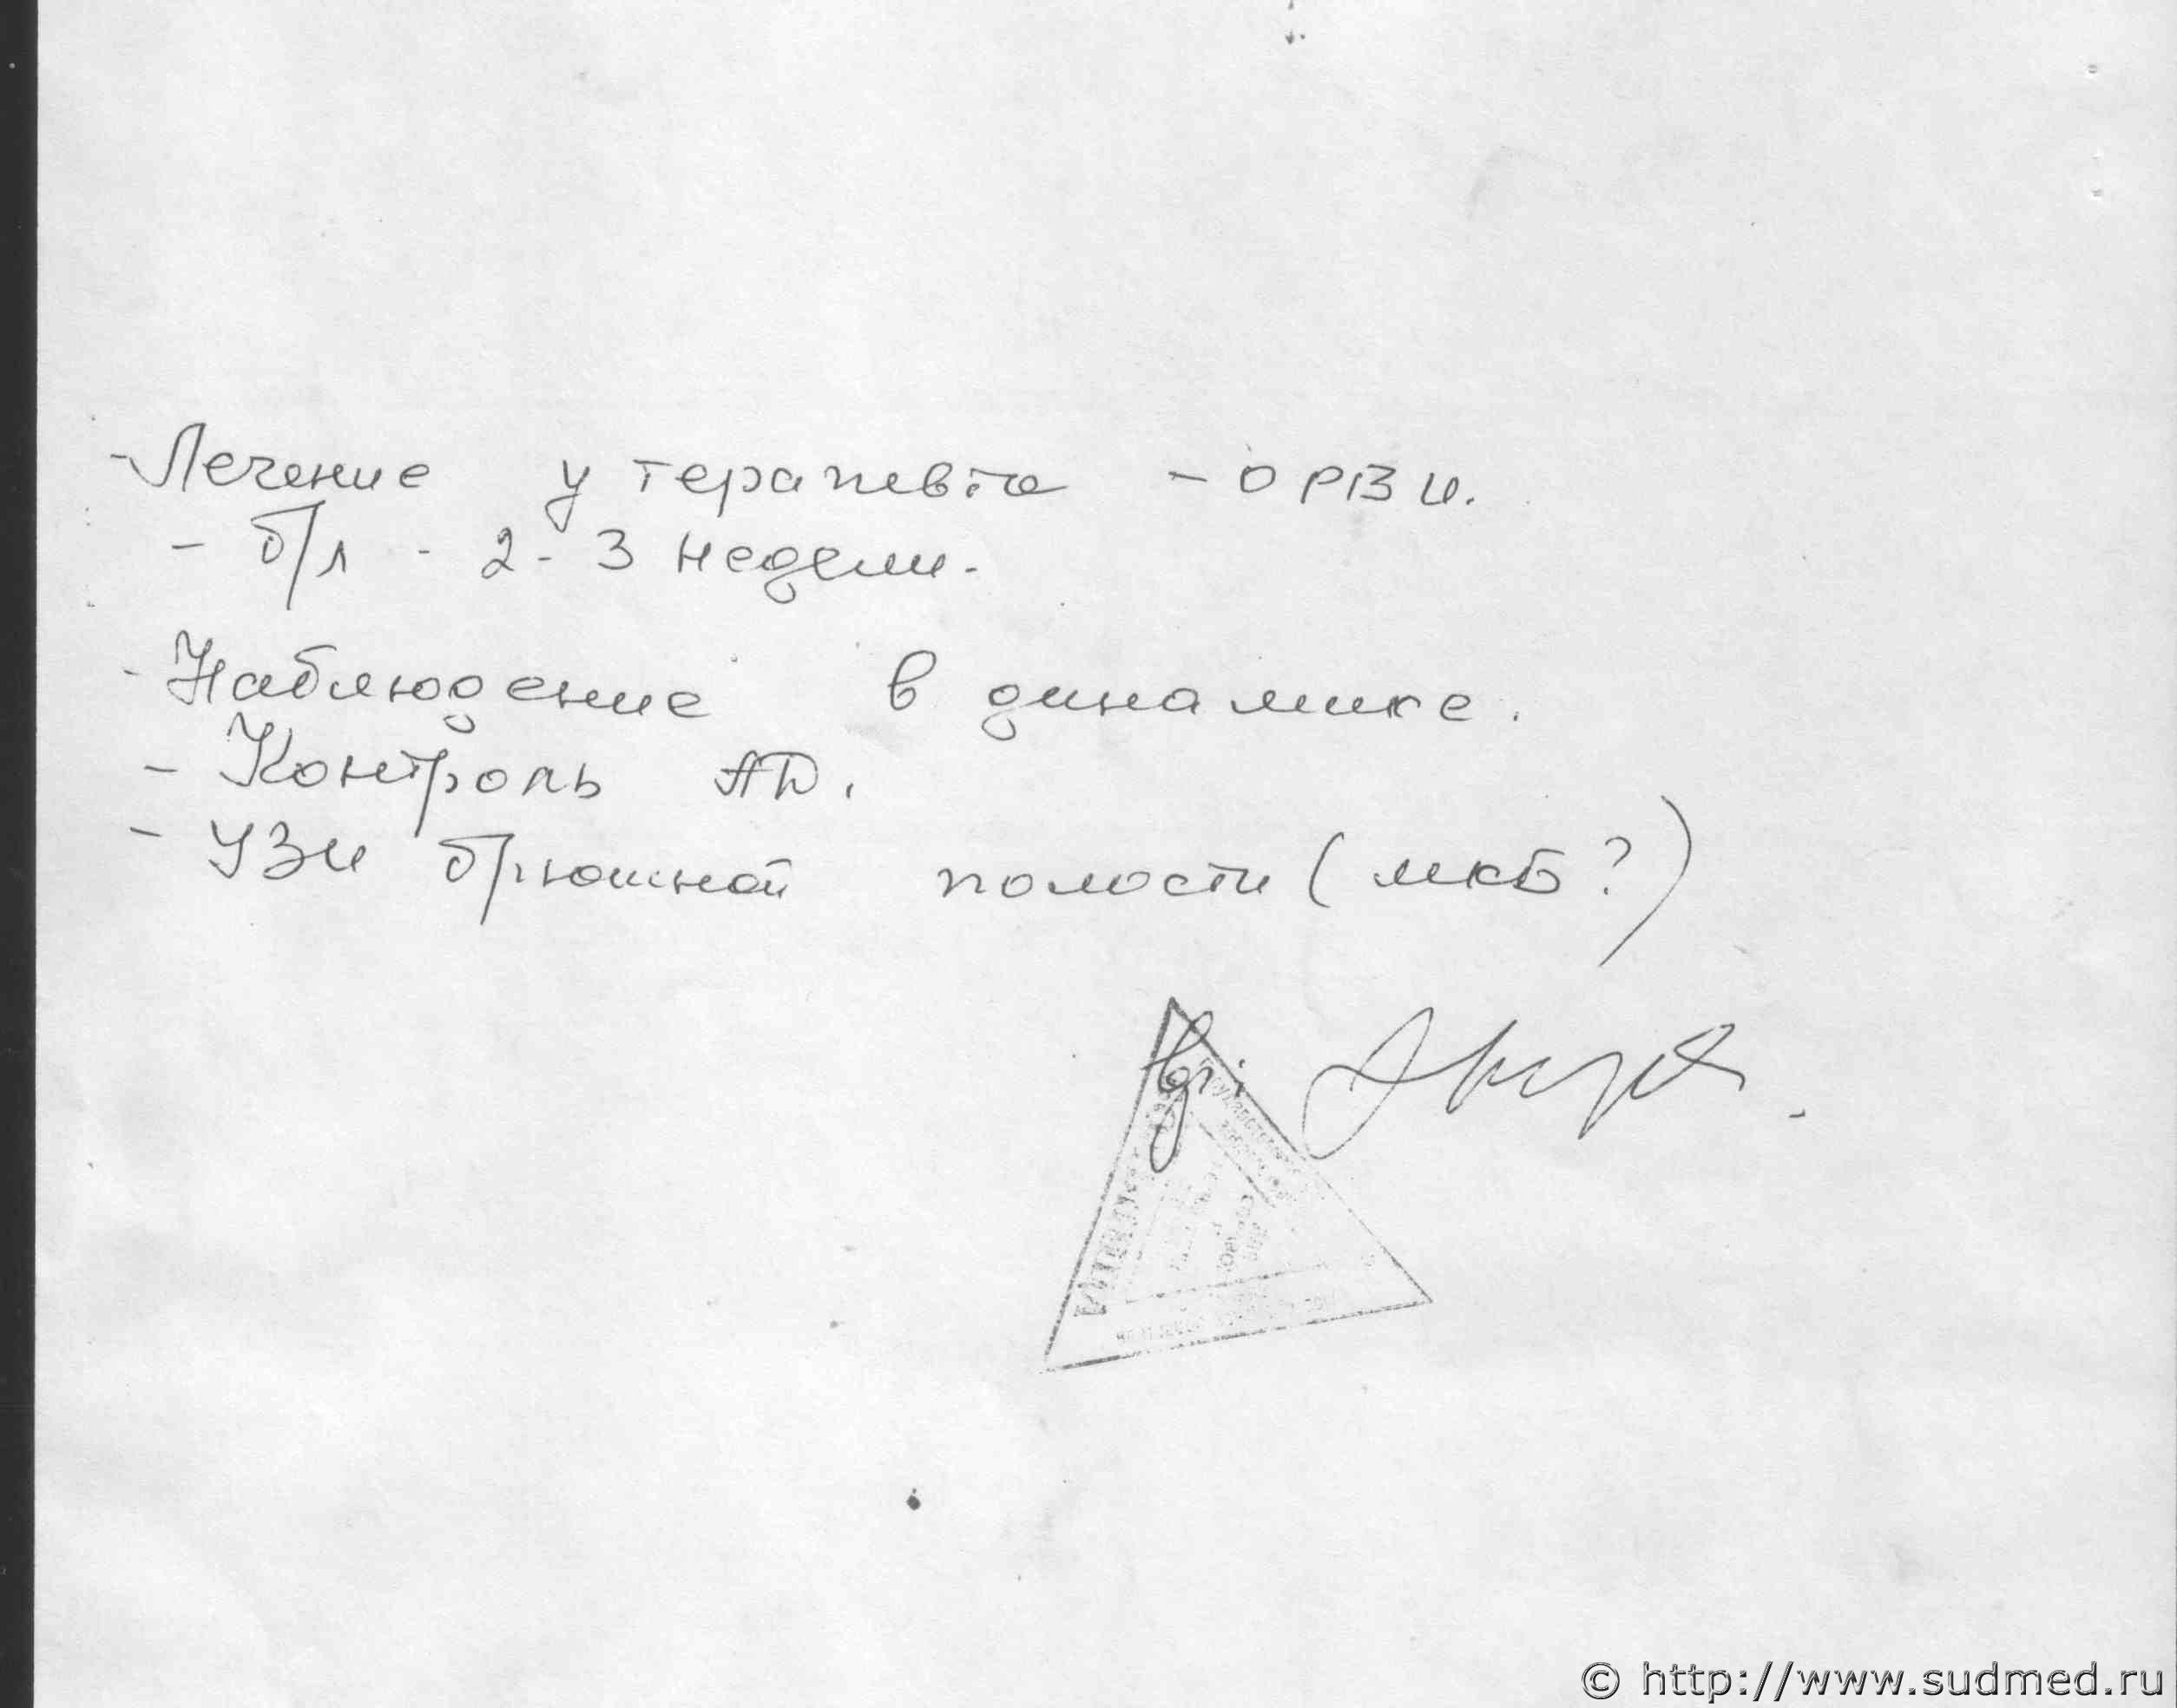 - Лечение у терапевта - ОРВИ.
- б/л - 2-3 недели.
- Наблюдение в динамике.
- Контроль АД.
- УЗИ брюшной полости (МКБ?)
© http://www.sudmed.ru